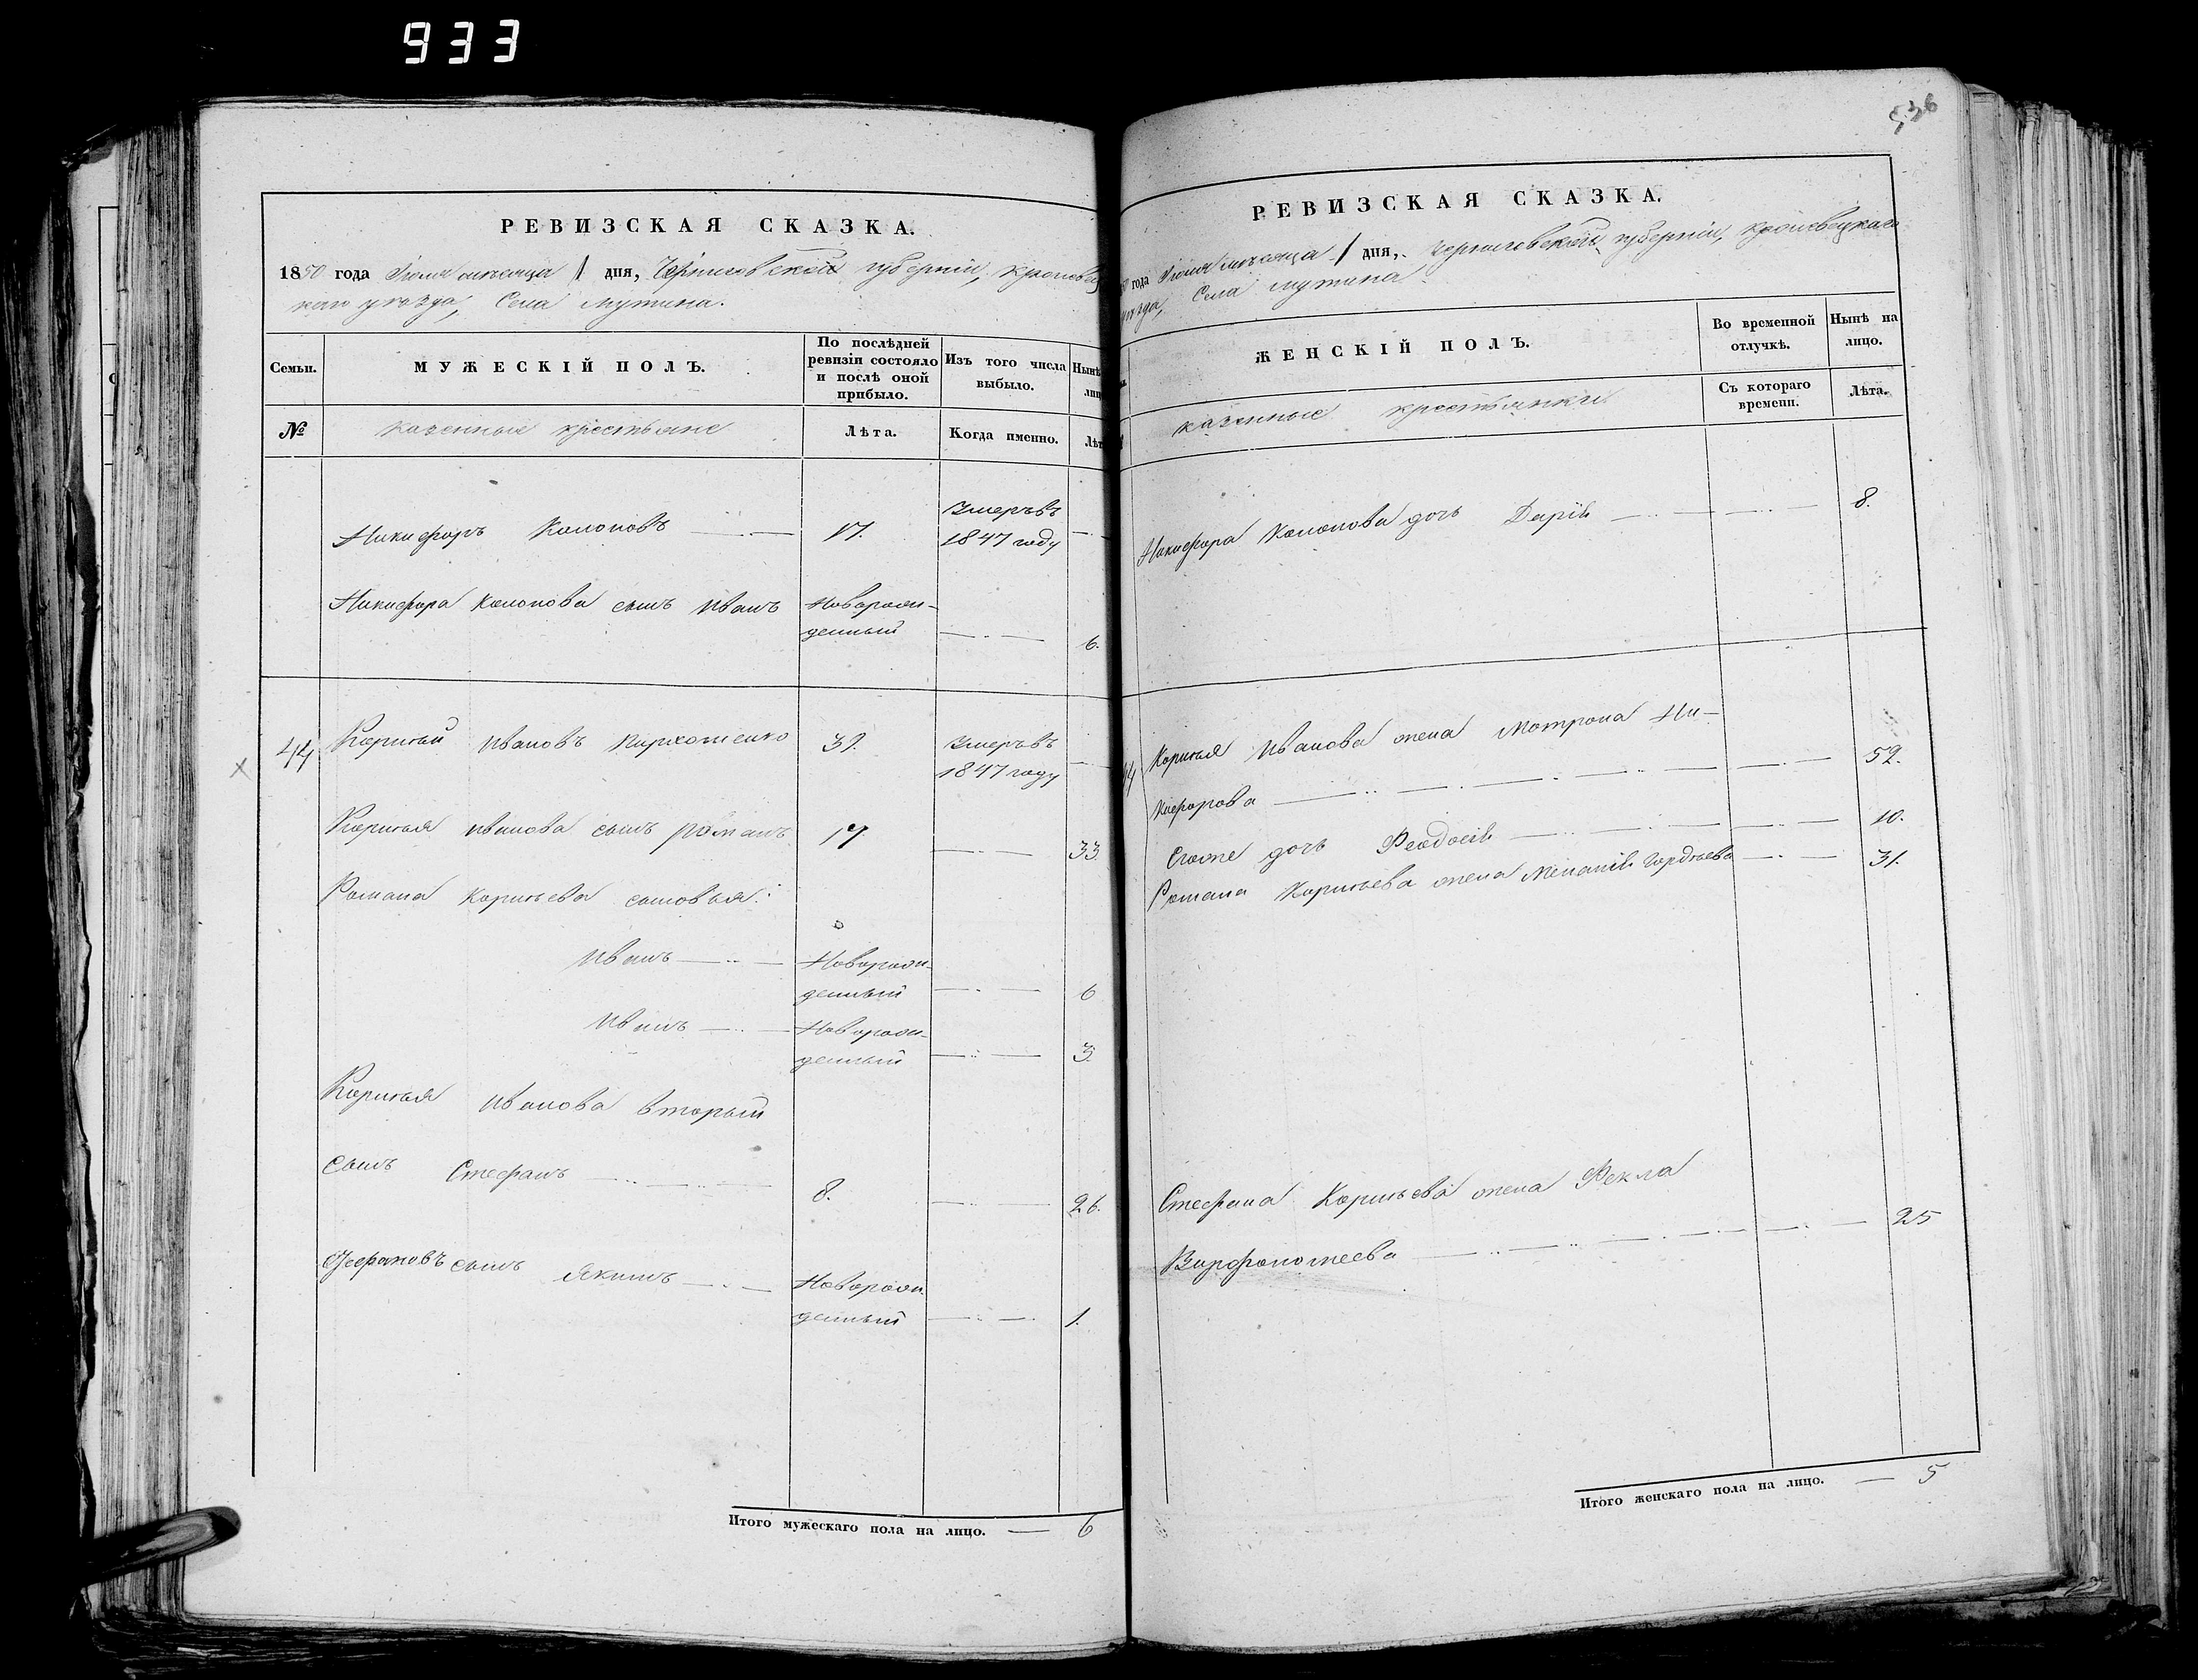 933
536
РЕВИЗСКАЯ СКАЗКА.
1850 года Іюля мѣсяца 1 дня, Черниговской губерніи, Кролевец
каго уѣзда, Села Мутина.
Семьи.
МУЖЕСКІЙ ПОЛЪ.
По послѣдней ревизіи состояло и послѣ оной прибыло.
Изъ того числа выбыло.
Нынѣ
№
казенные крестьяне
Лѣта.
Когда именно.
Лѣт
Никифоръ 17. Умеръ въ
1847 году
Никифора сынъ Иванъ Новорож-
денный 6.
44 Корнѣй Ивановъ 39. Умеръ въ
1847 году
Корнѣя Иванова сынъ Романъ 17 33
Романа Корнѣева сыновья:
Иванъ Новорож-
денный 6
Иванъ Новорож-
денный 3.
Корнѣя Иванова вторый
сынъ Стефанъ 8. 26.
Стефановъ сынъ Якимъ Новорож-
денный 1.
Итого мужескаго пола на лицо. — 6
РЕВИЗСКАЯ СКАЗКА.
года Іюля мѣсяца 1 дня, Черниговской губерніи, Кролевецкаго
уѣзда, Села Мутина
ЖЕНСКІЙ ПОЛЪ.
Во временной отлучкѣ.
Нынѣ на лицо.
казенные крестьянки
Съ котораго времени.
Лѣта.
Никифора дочь Дарія 8.
Корнѣя Иванова жена Мотрона Ни-
кифорова 52.
Егоже дочь Феодосія 10.
Романа Корнѣева жена Меланія Гордѣева 31.
Стефана Корнѣева жена Фекла
25
Итого женскаго пола на лицо. — 5